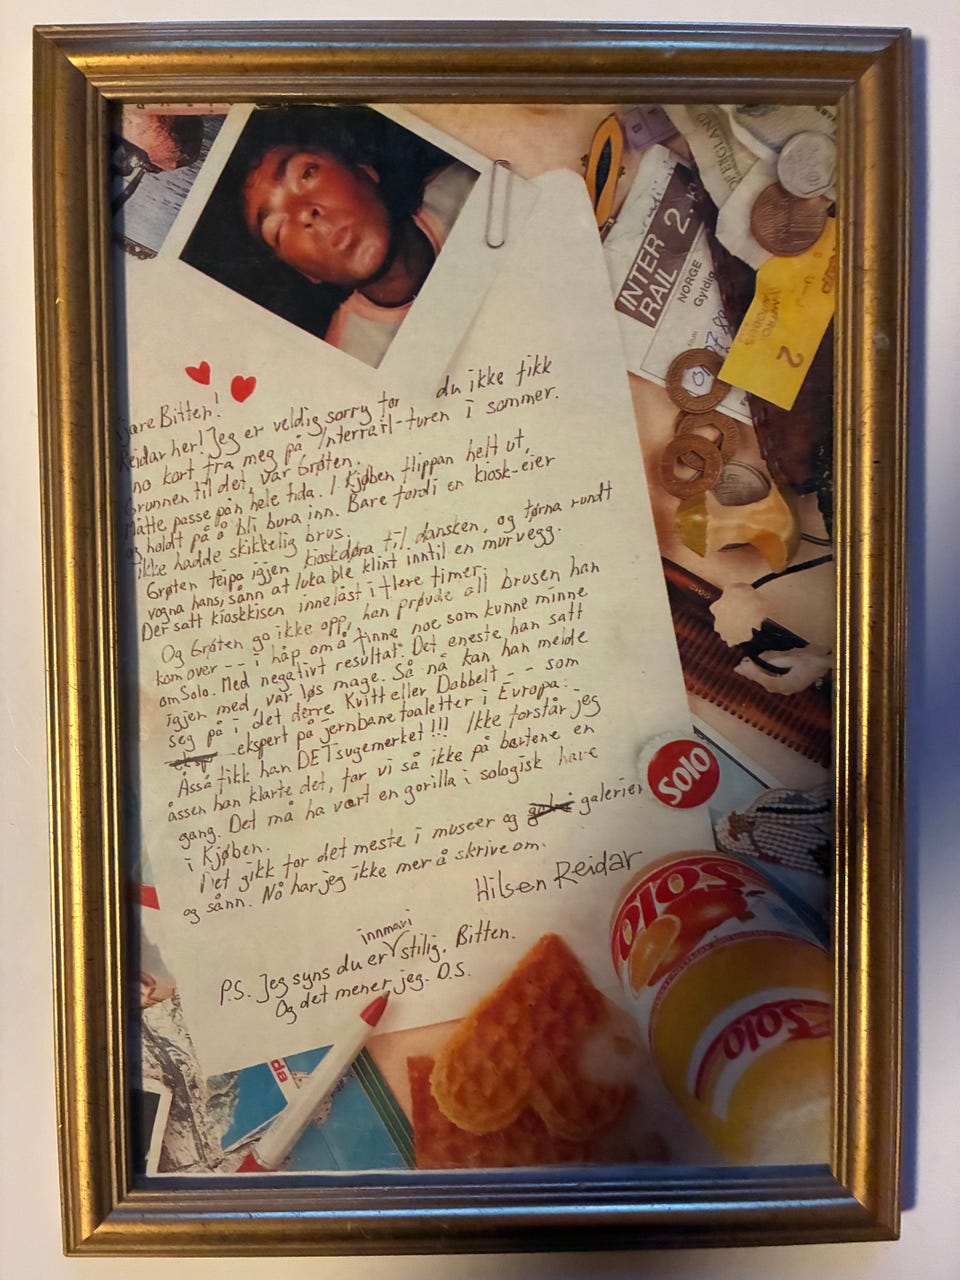 OF ENGLAND
INTER 2. kl
RAIL
NORGE
Gyldig
2
Kjære Bitten!
Reidar her! Jeg er veldig sorry for du ikke fikk
no kort fra meg på Interrail-turen i sommer.
Grunnen til det, var Grøten.
Måtte passe på'n hele tida. I Kjøben flippan helt ut,
og holdt på å bli bura inn. Bare fordi en kiosk-eier
ikke hadde skikkelig brus.
Grøten teipa igjen kioskdøra til dansken, og tørna rundt
vogna hans, sånn at luka ble klint inntil en murvegg.
Der satt kioskkisen innelåst i flere timer.
Og Grøten ga ikke opp, han prøvde all brusen han
kom over -- i håp om å finne noe som kunne minne
om Solo. Med negativt resultat. Det eneste han satt
igjen med, var løs mage. Så nå kan han melde
seg på i det derre Kvitt eller Dobbelt -- som
ekspert på jernbanetoaletter i Europa.
Åsså fikk han DET sugemerket!!! Ikke forstår jeg
åssen han klarte det, for vi så ikke på bertene en
gang. Det må ha vært en gorilla i zologisk have
i Kjøben.
Det gikk for det meste i museer og galerier
og sånn. Nå har jeg ikke mer å skrive om.
Hilsen Reidar
innmari
P.S. Jeg syns du er stilig, Bitten.
Og det mener jeg. D.S.
Solo
SOLO
Solo